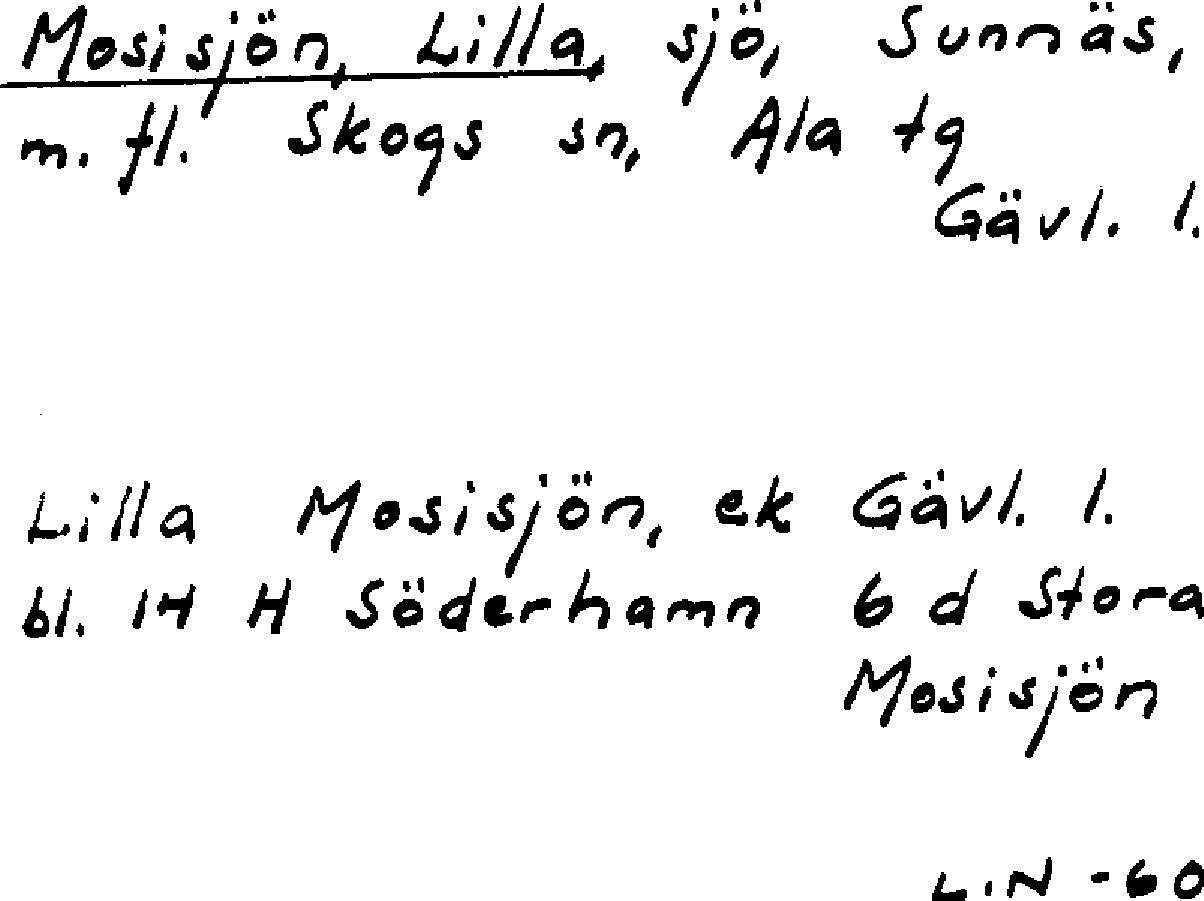 Mosisjön, Lilla, sjö, Sunnäs,
m. fl. Skogs sn, Ala tg
Gävl. l.
Lilla Mosisjön, ek Gävl. l.
bl. 14 H Söderhamn 6 d Stora
Mosisjön
L.N -60